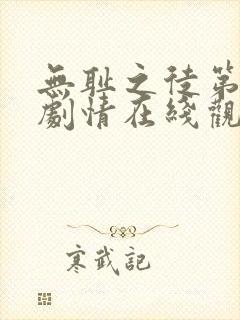 無耻之徒第
劇情在綫觀
寒武記